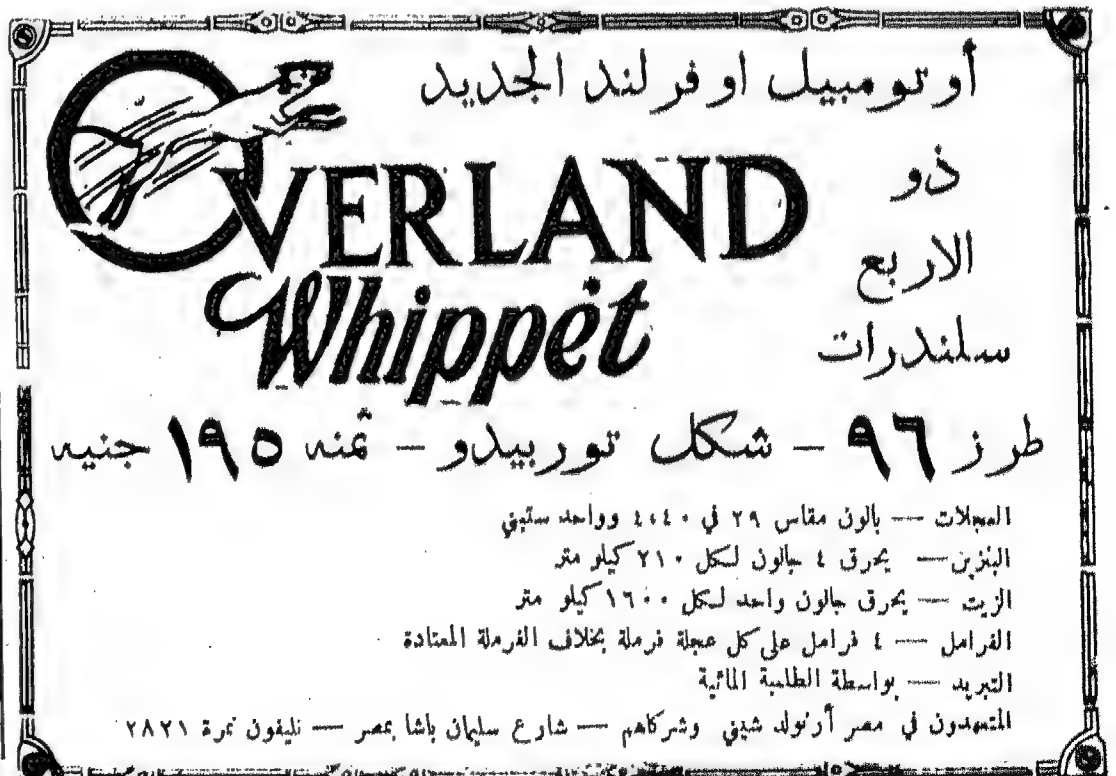 أوتومبيل اوفرلند الجديد
OVERLAND
Whippet
ذو
الاربع
سلندرات
طرز ٩٦ – شكل توربيدو – ثمنه ١٩٥ جنيه
العجلات — بالون مقاس ٢٩ في ٤٠٤٠ وواحد ستبني
البنزين — يحرق ٤ جالون لكل ٢١٠ كيلو متر
الزيت — يحرق جالون واحد لكل ١٦٠٠ كيلو متر
الفرامل — ٤ فرامل على كل عجلة فرملة بخلاف الفرملة المعتادة
التبريد — بواسطة الطلمبة المائية
المتعهدون في مصر أرنولد شيني وشركاهم — شارع سليمان باشا بمصر — تليفون نمرة ٢٨٢١